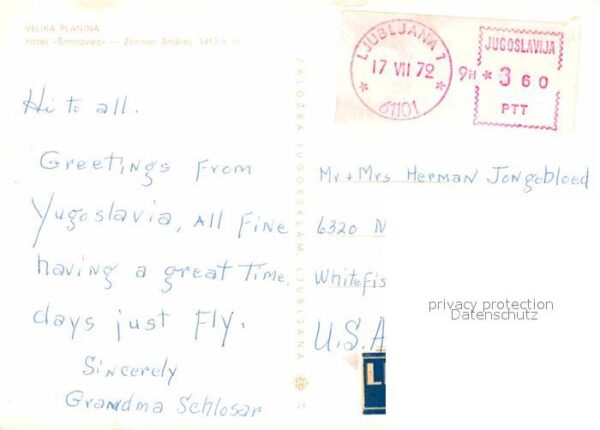 VELIKA PLANINA
hotel »Šimnovec« — Zormen Andrej, 1412 n. m.
LJUBLJANA 1
17 VII 72
9H
61101
JUGOSLAVIJA
* 3 60
PTT
Hi to all.
Greetings from
Yugoslavia, All Fine
having a great Time,
days just Fly.
Sincerely
Grandma Schlosar
ZALOŽBA JUGOREKLAM LJUBLJANA
Mr + Mrs Herman Jongebloed
6320 N
Whitefis
U.S.A
privacy protection
Datenschutz
L